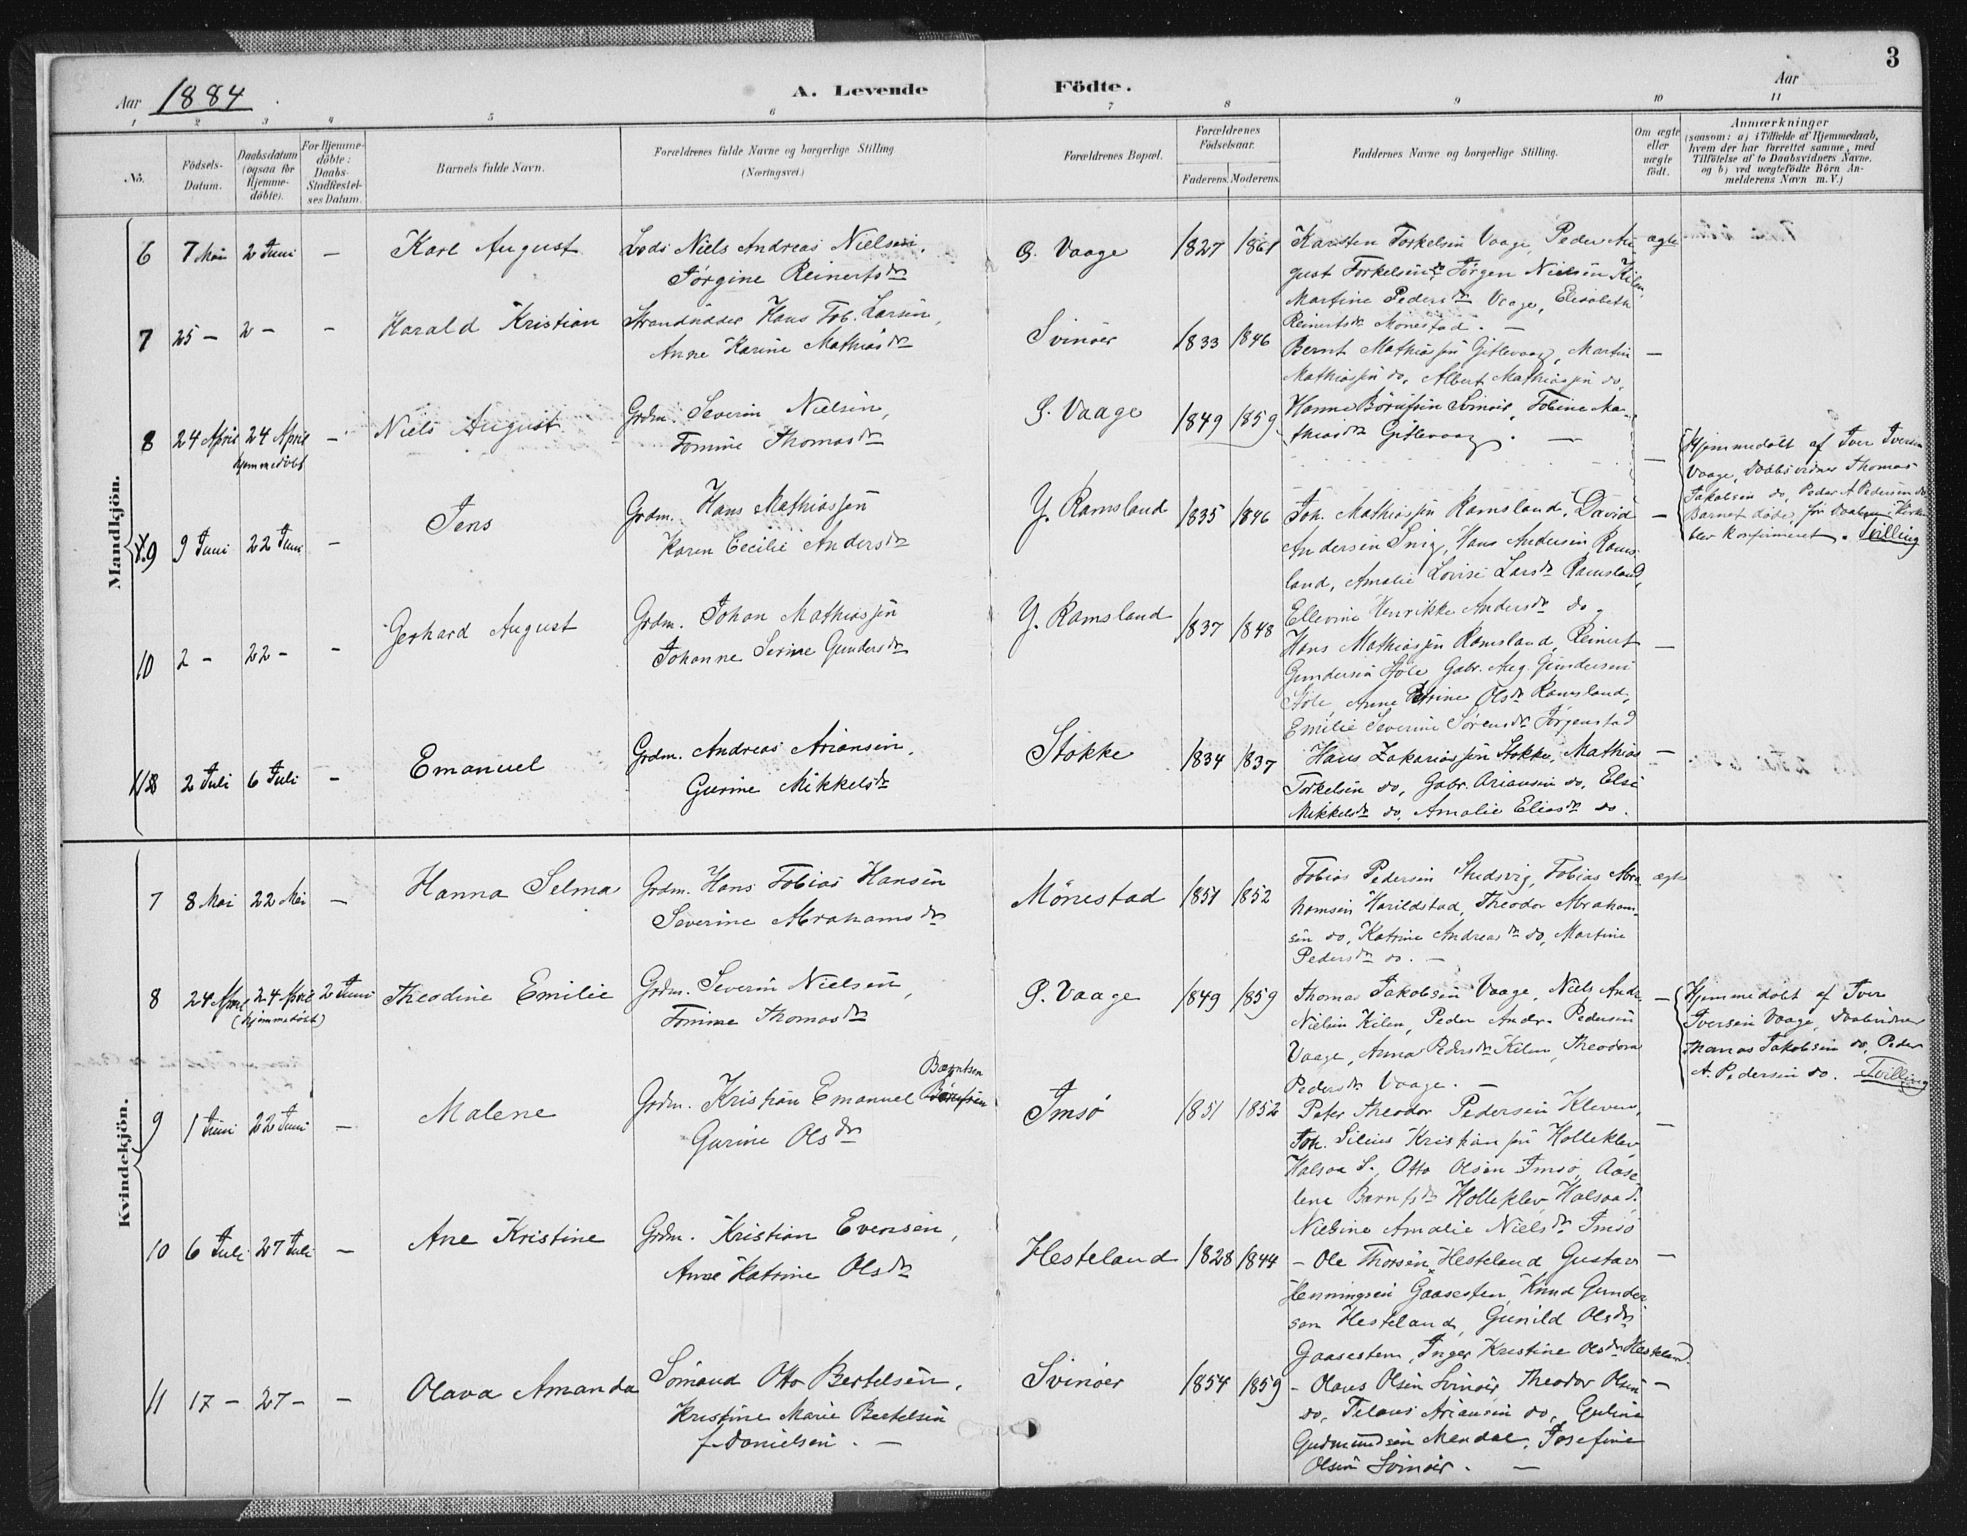 3
Aar 1884
A. Levende Födte.
Aar
1 2 3 4 5 6 7 8 9 10 11
No.
Födsels-Datum.
Daabsdatum (ogsaa for Hjemme-döbte).
For Hjemme-döbte: Daabs-Stadfæstel-ses Datum.
Barnets fulde Navn.
Forældrenes fulde Navne og borgerlige Stilling
(Næringsvei.)
Forældrenes Bopæl.
Forældrenes Födselsaar.
Faderens. Moderens.
Faddernes Navne og borgerlige Stilling.
Om ægte eller uægte födt.
Anmærkninger
(saasom: a) i Tilfælde af Hjemmedaab,
hvem der har forrettet samme, med
Tilföielse af to Daabsvidners Navne,
og b) ved uægtefödte Börn An-
melderens Navn m. V.)
Mandkjön.
6 7 Mai 2 Juni – Karl August
Lods Niels Andreas Nielsen,
Jørgine Reinertsdr
G. Vaage 1827 1861
Karsten Torkelsen Vaage, Peder Au- ægte
gust Torkelsen do, Jørgen Nielsen Kilen,
Martine Pedersdr Vaage, Elisabeth
Reinertsdr Monestad. –
7 25 – 2 – – Harald Kristian
Strandsidder Hans Tob. Larsen,
Anne Karine Mathiasdr
Svinøer 1833 1846
Bernt Mathiassen Gitlevaag, Martin –
Mathiassen do, Albert Mathiassen do,
Hanne Børufsen Svinøer, Tobine Ma-
thiasdr Gitlevaag. –
8 24 April 24 April –
hjemmedøbt
Niels August
Grdm. Severin Nielsen,
Tomine Thomasdr
G. Vaage 1849 1859
–
Hjemmedøbt af Iver Iversen
Vaage, Daabsvidner Thomas
Jakobsen do, Peder A. Pedersen do
Barnet døde, før Daaben i Kirken
blev konfirmeret. Tvilling
9 9 Juni 22 Juni – Jens
Grdm. Hans Mathiassen
Karen Cecilie Andersdr
Y. Ramsland 1835 1846
Joh. Mathiassen Ramsland, David –
Andersen Snig, Hans Andersen Rams-
land, Amalie Lovise Larsdr Ramsland,
Ellevine Henrikke Andersdr do.
10 2 – 22 – – Gerhard August
Grdm. Johan Mathiassen
Johanne Serine Gundersdr
Y. Ramsland 1837 1848
Hans Mathiassen Ramsland, Reinert –
Gundersen Støle, Gabr. Aug. Gundersen
Støle, Anne Petrine Olsdr Ramsland,
Emilie Severine Sørensdr Jørgenstad
11 2 Juli 6 Juli – Emanuel
Grdm. Andreas Ariansen,
Gurine Mikkelsdr
Stokke 1834 1837
Hans Zakariassen Stokke, Mathias –
Torkelsen do, Gabr. Ariansen do, Elsi
Mikkelsdr do, Amalie Eliasdr do.
Kvindekjön.
7 8 Mai 22 Mai – Hanna Selma
Grdm. Hans Tobias Hansen
Severine Abrahamsdr
Mønestad 1851 1852
Tobias Pedersen Studsvig, Tobias Abra- ægte
hamsen Harildstad, Theodor Abraham-
sen do, Katrine Andreasdr do, Martine
Pedersdr do. –
8 24 April 24 April 2 Juni
(hjemmedøbt)
Theodine Emilie
Grdm. Severin Nielsen,
Tomine Thomasdr
G. Vaage 1849 1859
Thomas Jakobsen Vaage, Niels Andr. –
Nielsen Kilen, Peder Andr. Pedersen
Vaage, Anna Pedersdr Kilen, Theodora
Pedersdr Vaage. –
Hjemmedøbt af Iver
Iversen Vaage, Daabsvidner
Thomas Jakobsen do, Peder
A. Pedersen do. Tvilling
9 1 Juni 22 Juni – Malene
Grdm. Kristian Emanuel Børufsen
Bærntsen
Gurine Olsdr
Imsø 1851 1852
Peter Theodor Pedersen Kleven, –
Joh. Silius Kristiansen Holleklev
Halsaa S., Otto Olsen Imsø, Aase-
lene Barntsdr Holleklev Halsaa S.
Nielsine Amalie Nielsdr Imsø
10 6 Juli 27 Juli – Ane Kristine
Grdm. Kristian Evensen,
Anne Katrine Olsdr
Hesteland 1828 1844
– Ole Thorsen Hesteland, Gustav –
Henningsen Gaasesten, Knud Gunder-
sen Hesteland, Gunild Olsdr
Gaasesten, Inger Kristine Olsdr Hesteland.
11 17 – 27 – – Olava Amanda
Sømand Otto Bertelsen,
Kristine Marie Bertelsen
f. Danielsen. –
Svinøer 1854 1859
– Olaus Olsen Svinøer, Theodor Olsen –
do, Telaus Ariansen do, Guline
Gudmundsen Mandal, Josefine
Olsen Svinøer. –